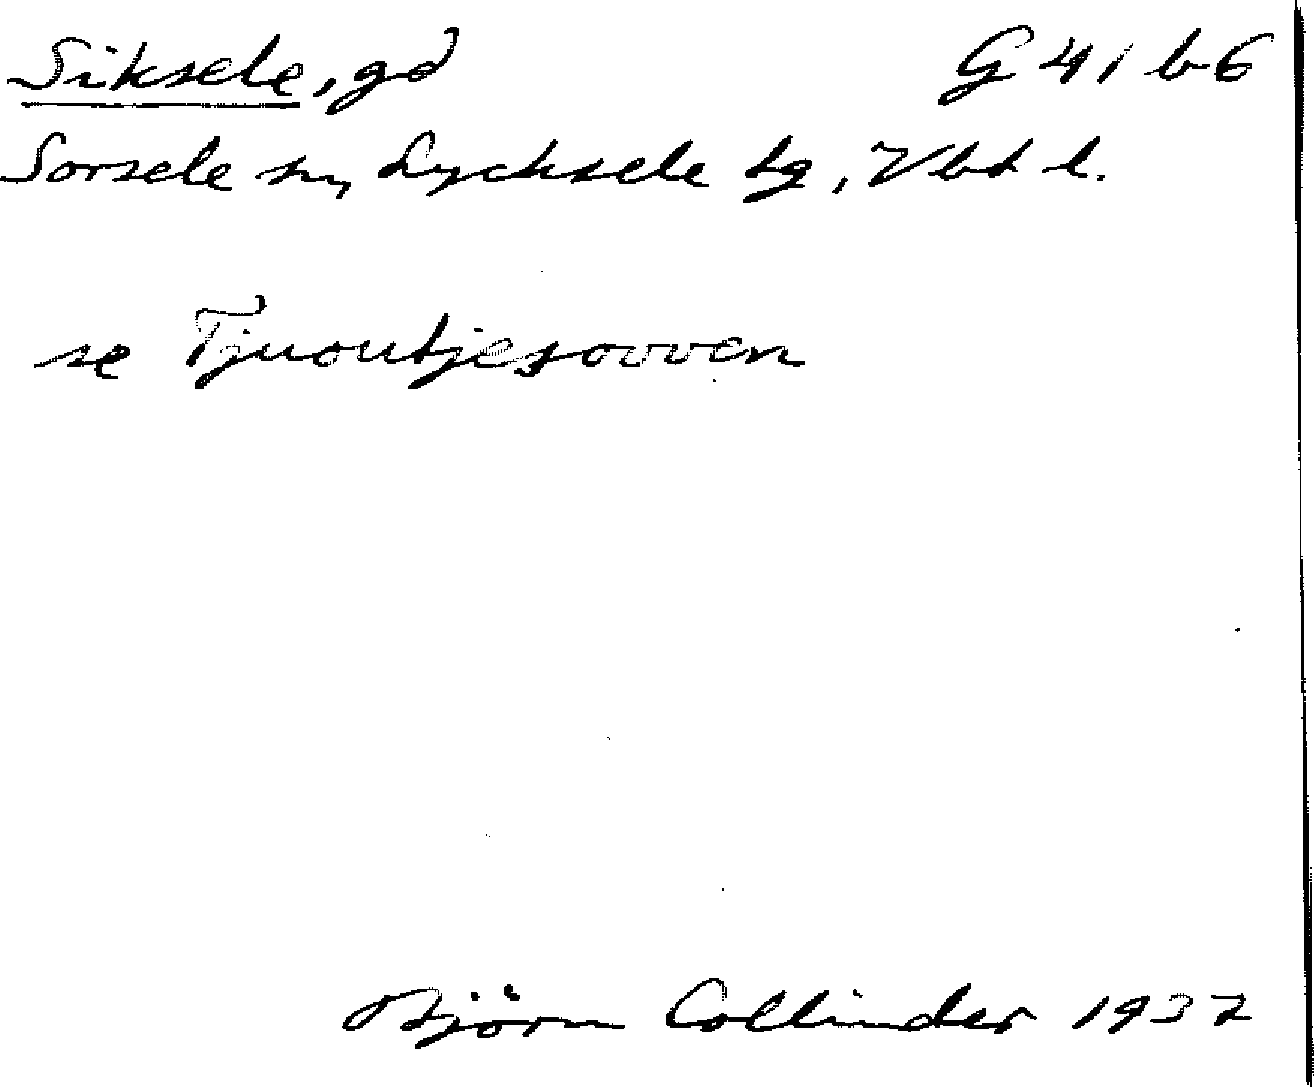 Siksele, gd G 41 b 6
Sorsele sn, Lycksele lg, Vbt l.
se Tjuoutjesovven
Björn Collinder 1937